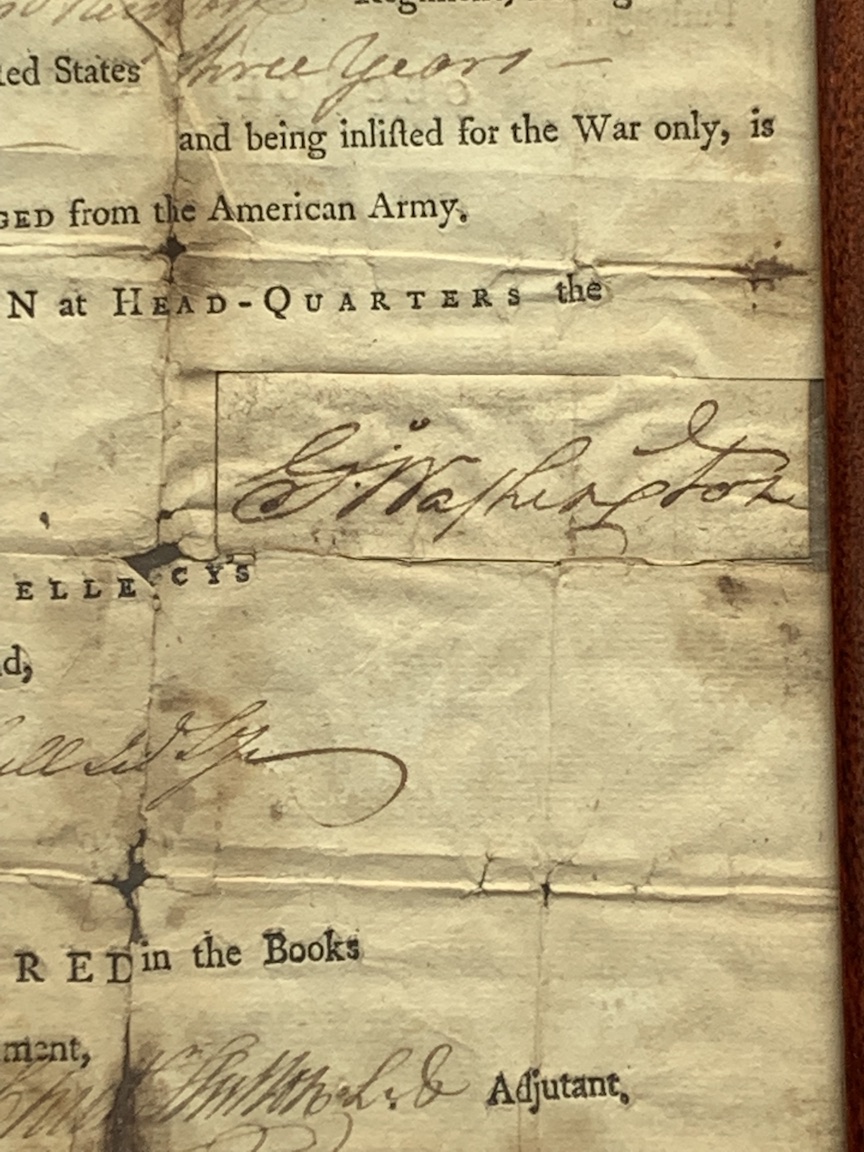 Regiment,
ted States three Years —
and being inliſted for the War only, is
GED from the American Army.
N at HEAD-QUARTERS the
G:Washington
ELLE CY'S
nd,
RED in the Books
ment,
Adjutant.